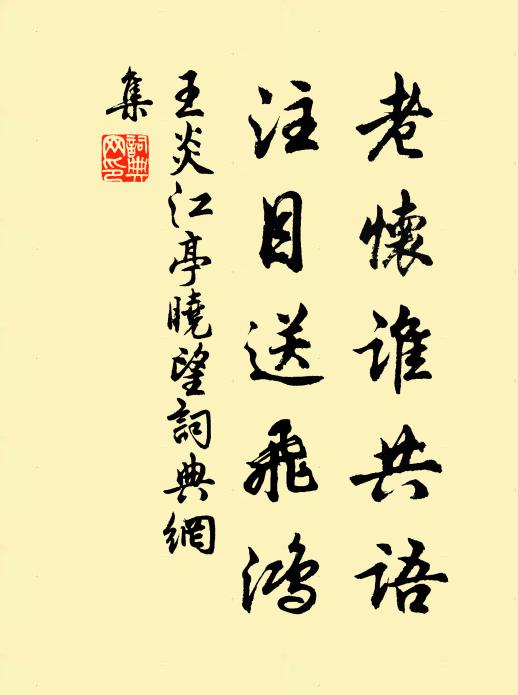 老懷誰共語
注目送飛鴻
王炎江亭曉望詞典網
集
詞典
网印